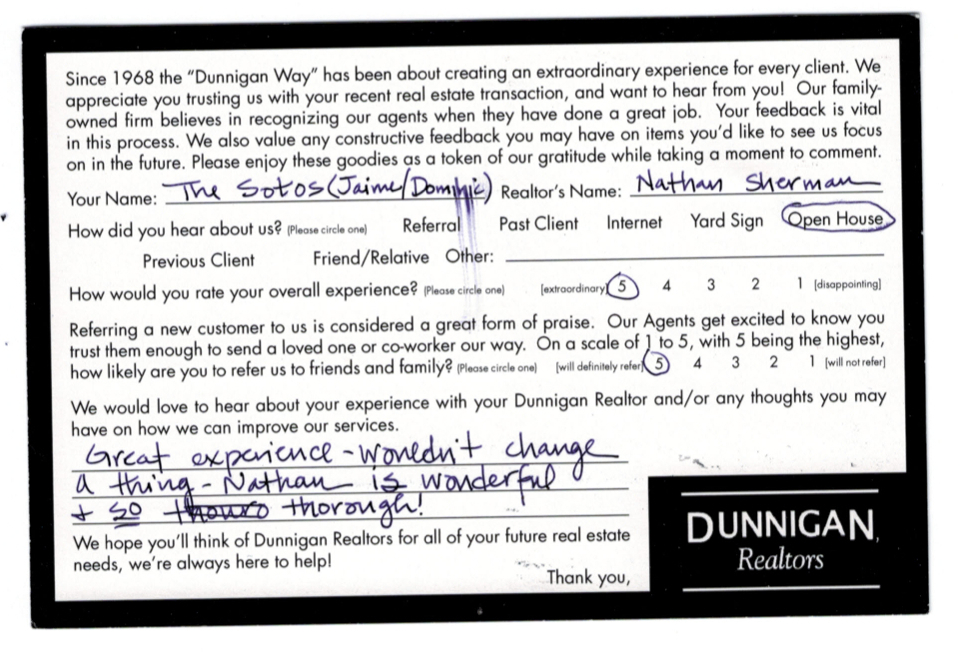 Since 1968 the "Dunnigan Way" has been about creating an extraordinary experience for every client. We
appreciate you trusting us with your recent real estate transaction, and want to hear from you! Our family-
owned firm believes in recognizing our agents when they have done a great job. Your feedback is vital
in this process. We also value any constructive feedback you may have on items you'd like to see us focus
on in the future. Please enjoy these goodies as a token of our gratitude while taking a moment to comment.
Your Name: The Sotos (Jaime/Dominic) Realtor's Name: Nathan Sherman
How did you hear about us? (Please circle one) Referral Past Client Internet Yard Sign Open House
Previous Client Friend/Relative Other:
How would you rate your overall experience? (Please circle one) [extraordinary] 5 4 3 2 1 [disappointing]
Referring a new customer to us is considered a great form of praise. Our Agents get excited to know you
trust them enough to send a loved one or co-worker our way. On a scale of 1 to 5, with 5 being the highest,
how likely are you to refer us to friends and family? (Please circle one) [will definitely refer] 5 4 3 2 1 [will not refer]
We would love to hear about your experience with your Dunnigan Realtor and/or any thoughts you may
have on how we can improve our services.
Great experience - wouldn't change
a thing - Nathan is wonderful
+ so thouro thorough!
We hope you'll think of Dunnigan Realtors for all of your future real estate
needs, we're always here to help!
Thank you,
DUNNIGAN,
Realtors